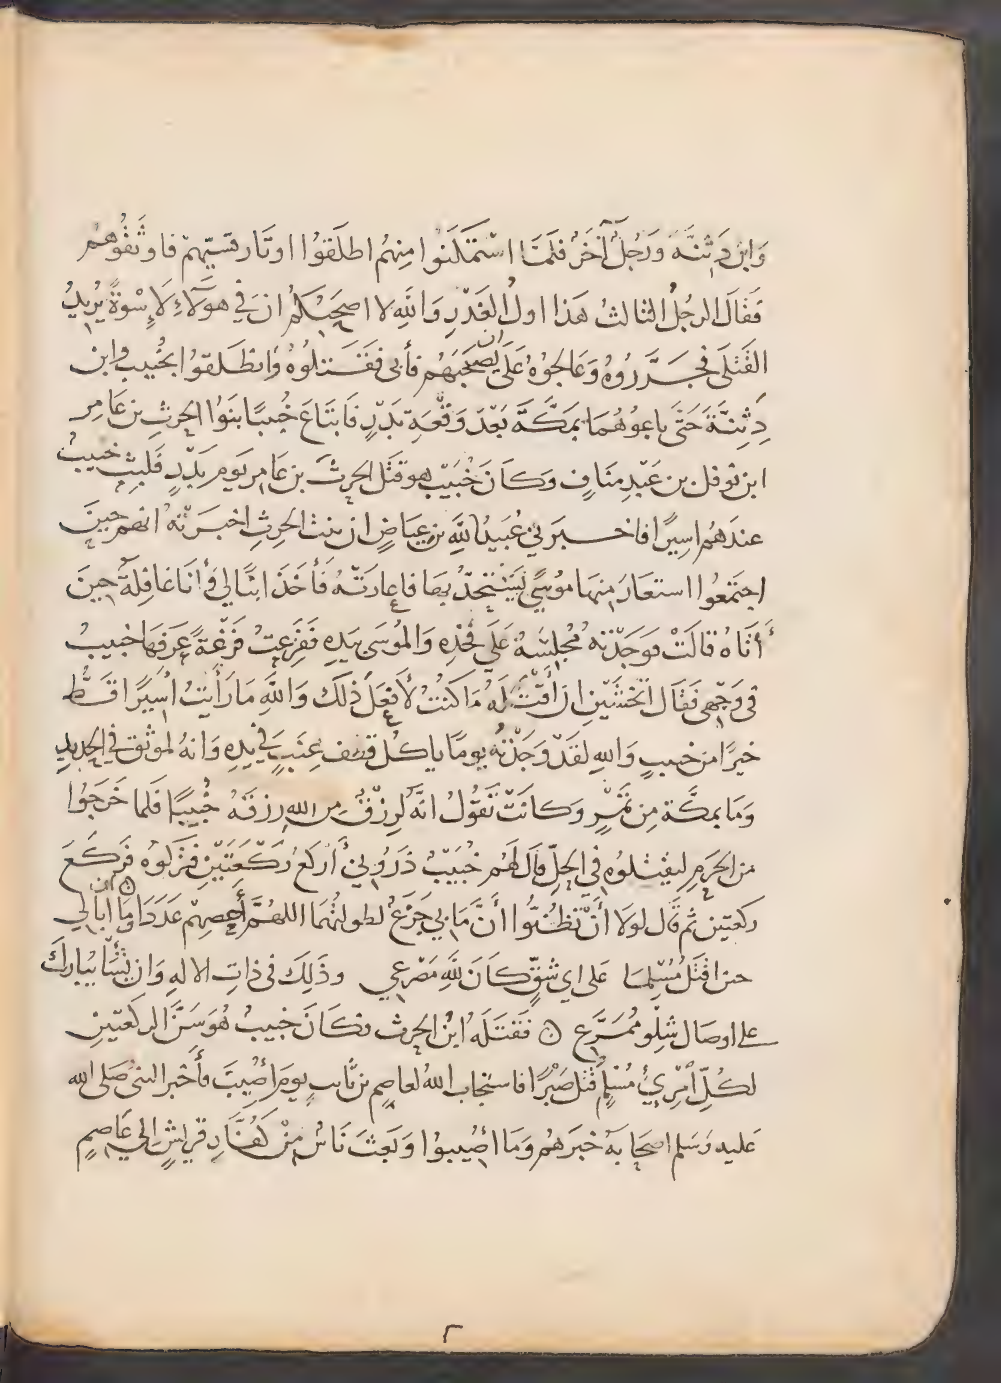 وَابن دَثِنَةَ وَرَجُلٌ آخَرُ فَلَمَّا اسْتَمكَنُوا مِنهُم اطلَقُوا اوتَار قسيّهِمْ فاوثَقُوهُم
فَقَالَ الرجُلُ الثالثُ هَذا اولُ الغَدْرِ وَاللهِ لا اصحَبُكُم ان في هَؤلآءِ لَإِسْوَةً يُرِيدُ
القَتْلَى فجَرَّرُوهُ وَعَالجوُهُ عَلَى ان يَصحَبَهُم فأبى فقَتلُوهُ وَانطلَقوُا بخُبَيب وابن
دِثِنَةَ حَتَّى باعُوهُمَا بمَكَّةَ بَعْدَ وَقْعَةِ بَدْرٍ فَابتَاعَ خُبَيبًا بَنوُا الحرِثِ بن عَامِر
ابن نَوفَل بن عَبْدِ مَنَافٍ وَكَانَ خُبَيْبٌ هو قَتَل الحرِثَ بن عَامِر يَوم بَدْرٍ فَلبِثَ خبيبٌ
عندَهُم اسِيرًا فاخبَرَني عُبَيدُ اللهِ بنِ عِيَاضٍ ان بنت الحرِثِ اخبَرَتْهُ انهم حِينَ
اجتَمَعُوا استعَارَ مِنهَا مُوسًى يَسْتَحِدُّ بهَا فاعَارَتْهُ فَأخَذَ ابنًا لي وَأنَا غَافِلَةٌ حِينَ
أتَاهُ قالَتْ فوَجَدْتهُ مُجْلِسَهُ عَلَى فَخِذِهِ وَالمُوسَى بيَدِهِ فَفَزِعتُ فَزْعَةً عَرَفَهَا خبيبٌ
في وَجْهِي فَقَال اتَخْشَيْنِ ان أقتُلَهُ مَا كنتُ لأفعَلَ ذَلكَ وَاللهِ مَا رَأيتُ أسِيرًا قَطُّ
خيرًا من خبيبٍ وَاللهِ لقَدْ وَجَدْتهُ يومًا ياكُل قطف عِنَبٍ في يَدِهِ وَانهُ لموُثَق في الحديدِ
وَمَا بمكَّة مِن ثَمَرٍ وَكانَتْ تَقُولُ انَّهُ لَرِزْقٌ مِن اللهِ رِزقَهُ خُبَيبًا فَلما خَرَجُوا
من الحَرَمِ ليَقْتلُوهُ في الحِلِّ قَال لهُم خُبَيْبٌ ذَرُوني أركَعُ رَكْعَتَيْنِ فَتركُوهُ فَركَعَ
ركعتين ثم قَال لولَا أنْ تَظُنُّوا أنَّ مَا بي جَزَعٌ لطولتُهُمَا اللهُمَّ أحصِهِمْ عَدَدًا وَمَا ان ابَالي
حين اقتَلُ مُسْلِمًا عَلى اي شِقٍّ كَانَ للَّهِ مَصْرَعِي وذَلِكَ في ذاتِ الالهِ وَان يَشَأ يُبَارِكْ
على اوصَال شِلْوٍ مُمَزَّعِ فَقَتَلَهُ ابنُ الحرِث وكَانَ خبيبٌ هُوَ سَنَّ الركعتَينِ
لكُلِّ امْرِئٍ مُسْلِمٍ قُتل صَبْرًا فاستجَاب اللهُ لعاصِمِ بن ثَابتٍ يومَ أُصِيبَ فأخْبرَ النبيُّ صَلى الله
عَليه وَسَلم اصحَابَهُ خبَرَهُم وَمَا اصُيبوُا وَبَعَثَ نَاسٌ مِنْ كفُّارِ قريشٍ الي عَاصِمٍ
٢